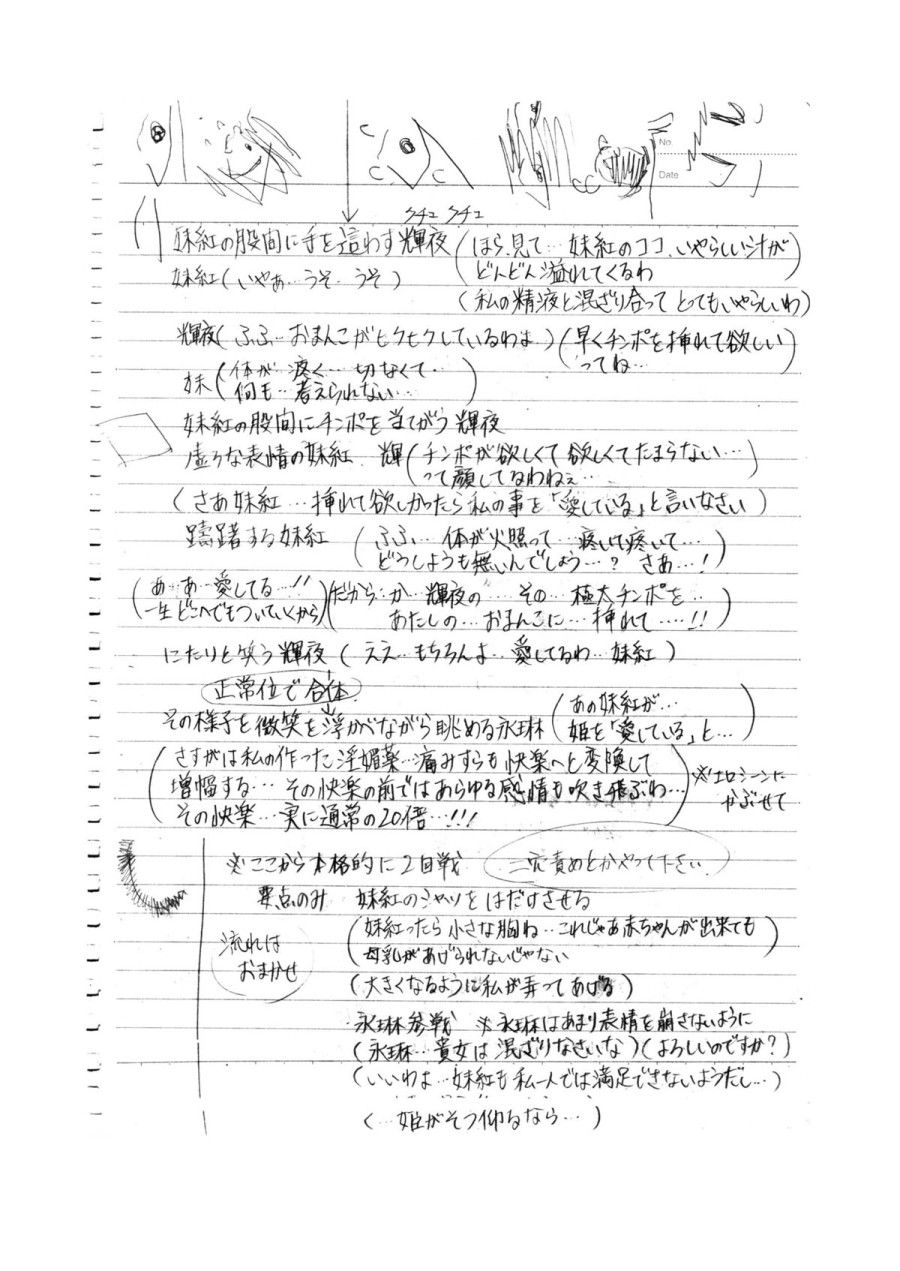 No.
Date
クチュ クチュ
妹紅の股間に手を這わす輝夜 (ほら、見て…妹紅のココ、いやらしい汁が
どんどん溢れてくるわ)
妹紅(いやぁ…うそ…うそ)
(私の精液と混ざり合って とってもいやらしいわ)
輝夜(ふふ…おまんこがヒクヒクしているわよ…)(早くチンポを挿れて欲しい
ってね…)
妹(体が…疼く…切なくて…
何も…考えられない…)
妹紅の股間にチンポを当てがう輝夜
虚ろな表情の妹紅 輝(チンポが欲しくて欲しくてたまらない…
って顔してるわねぇ…)
(さあ妹紅…挿れて欲しかったら私の事を「愛している」と言いなさい)
躊躇する妹紅 (ふふ…体が火照って…疼いて疼いて…
どうしようも無いんでしょう…?さあ…!)
(あ…あ…愛してる…!!
一生どこへでもついていくから)
(だから…か…輝夜の…その…極太チンポを…
あたしの…おまんこに…挿れて……!!)
にたりと笑う輝夜(ええ…もちろんよ…愛してるわ…妹紅)
正常位で合体
その様子を微笑を浮かべながら眺める永琳 (あの妹紅が…
姫を「愛している」と…)
(さすがは私の作った淫媚薬…痛みすらも快楽へと変換して
増幅する…その快楽の前ではあらゆる感情も吹き飛ぶわ…
その快楽…実に通常の20倍…!!!)
※エロシーンに
かぶせて
※ここから本格的に2回戦 二穴責めとかやって下さい
要点のみ 妹紅のシャツをはだけさせる
流れは
おまかせ
(妹紅ったら小さな胸ね…これじゃあ赤ちゃんが出来ても
母乳があげられないじゃない)
(大きくなるように私が弄ってあげる)
永琳参戦 ※永琳はあまり表情を崩さないように
(永琳…貴女は混ざりなさいな)(よろしいのですか?)
(いいわよ…妹紅も私一人では満足できないようだし…)
(…姫がそう仰るなら…)